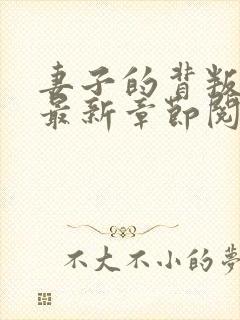 妻子的背叛
最新章節閱
不大不小的夢